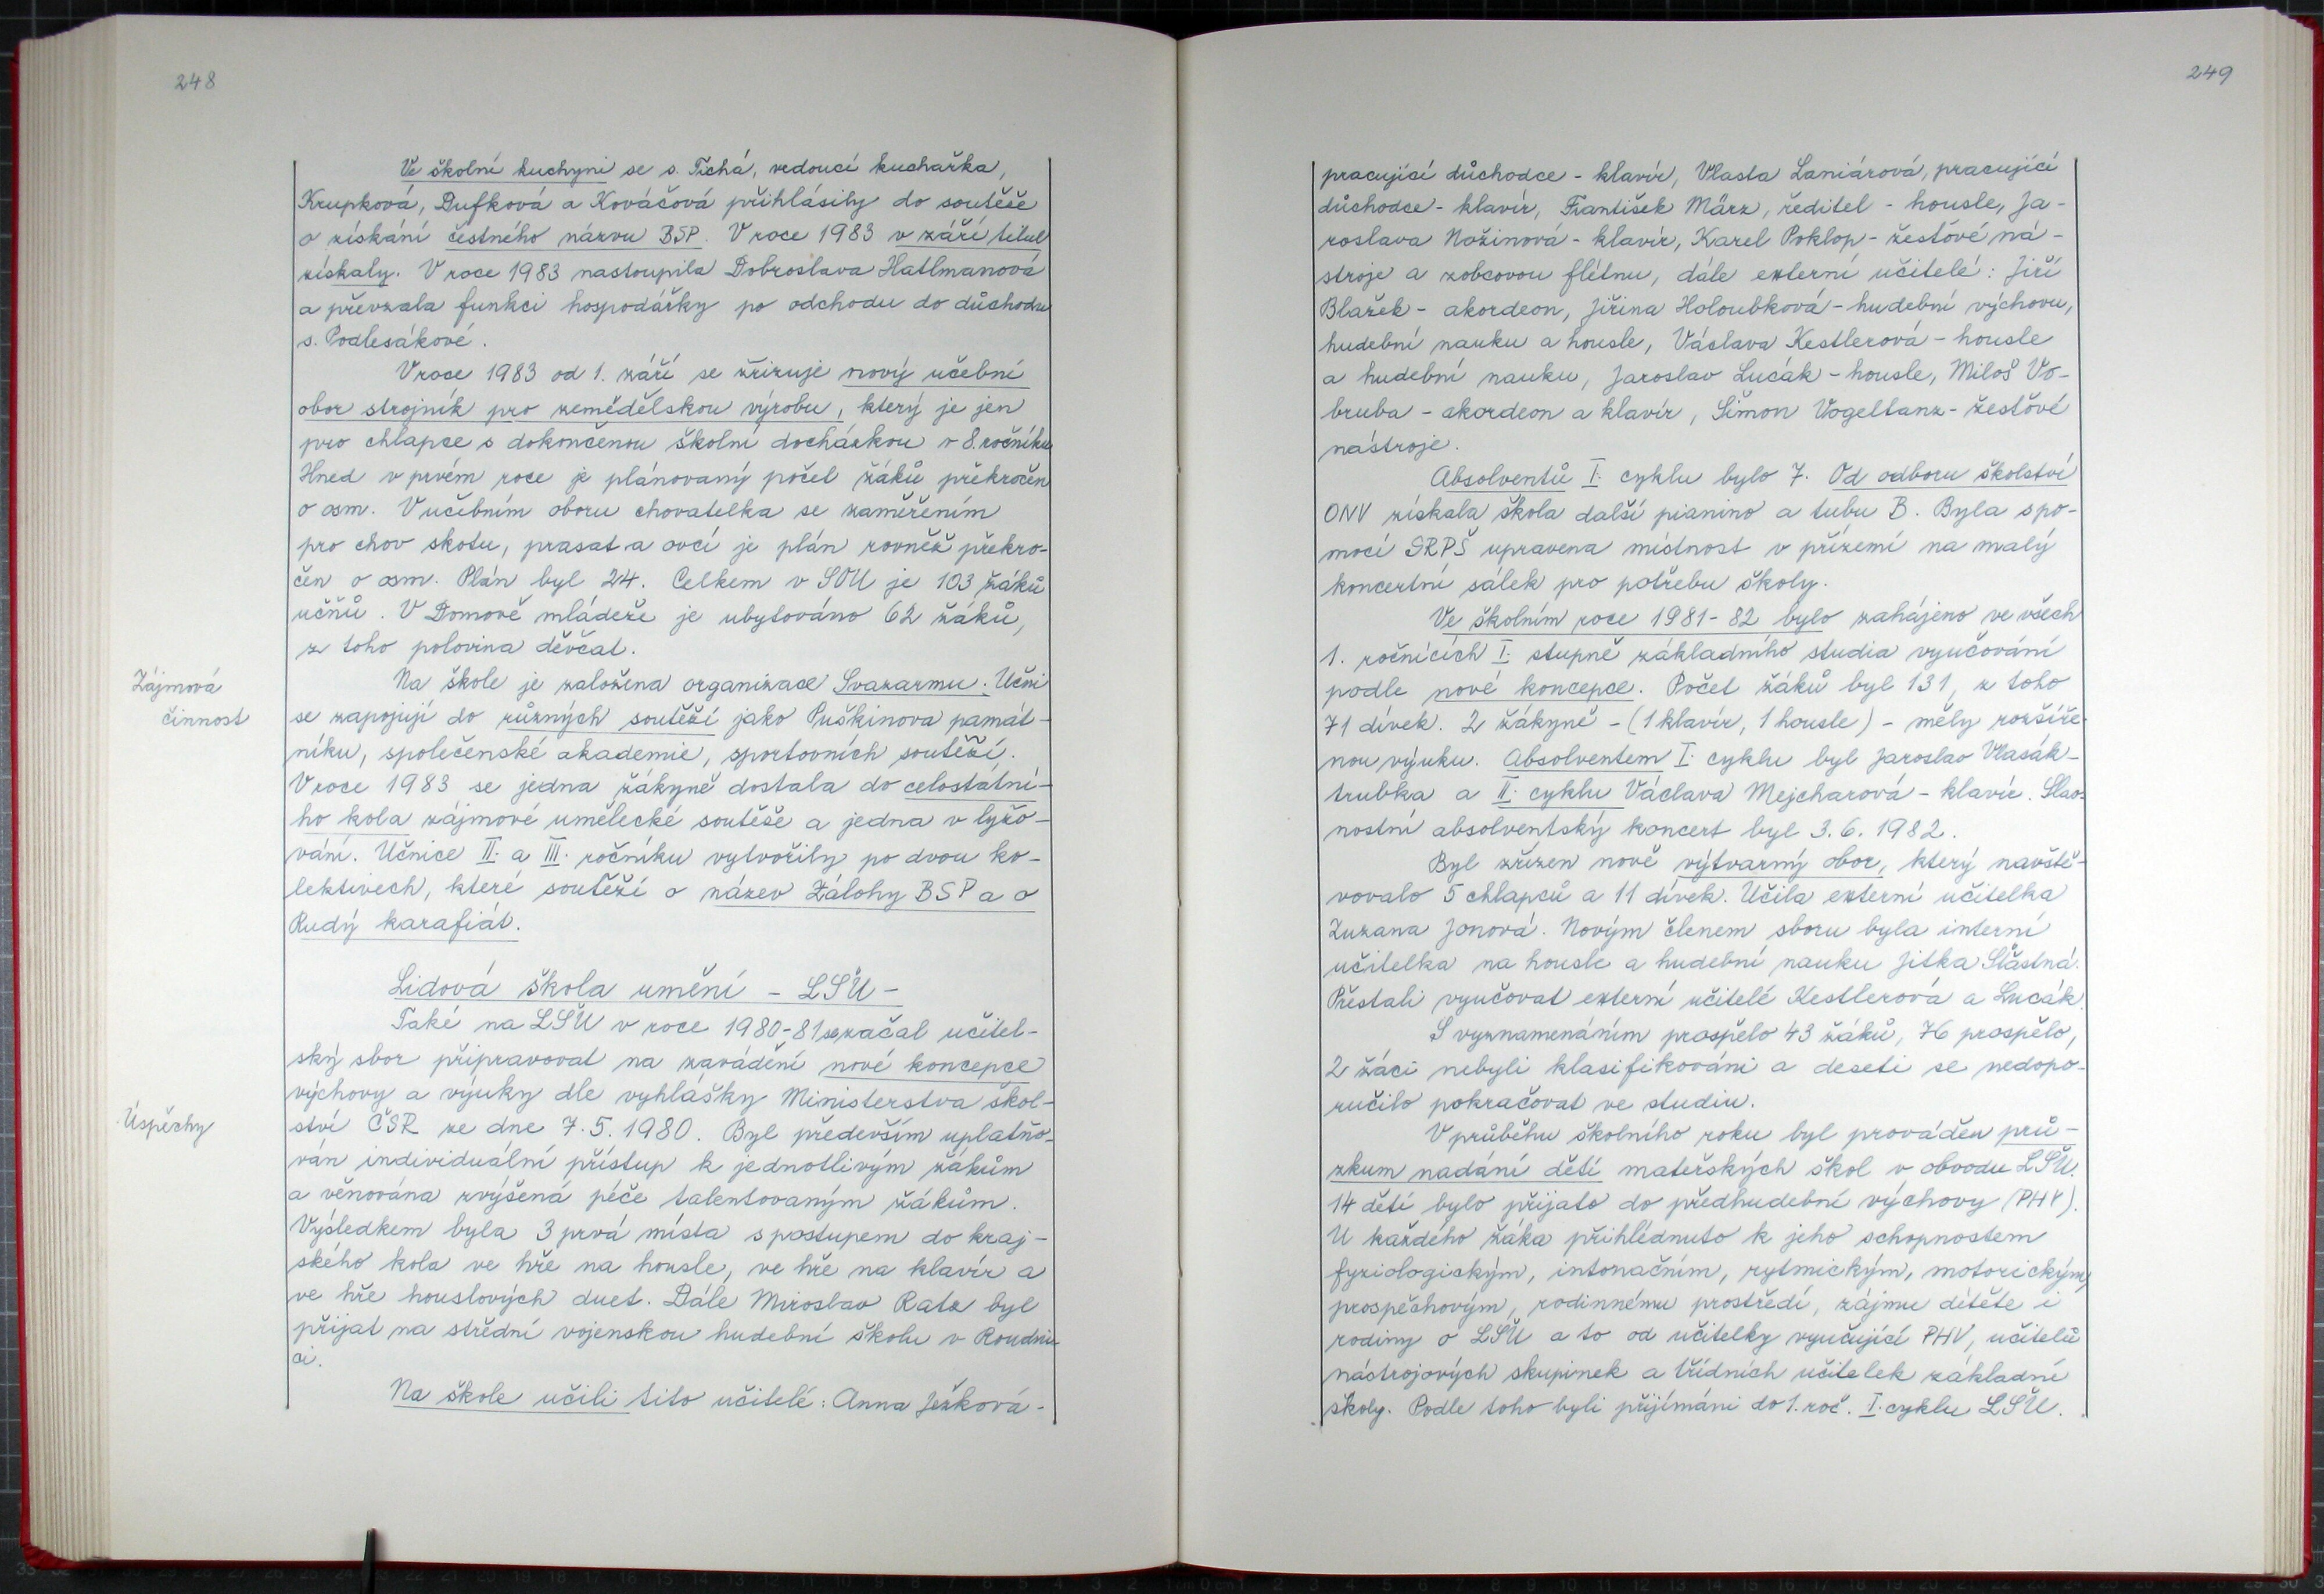 248
Ve školní kuchyni se s. Tichá, vedoucí kuchařka,
Krupková, Dufková a Kováčová přihlásily do soutěže
o získání čestného názvu BSP. V roce 1983 v září titul
získaly. V roce 1983 nastoupila Dobroslava Hatlmanová
a převzala funkci hospodářky po odchodu do důchodu
s. Podlesákové.
V roce 1983 od 1. září se zřizuje nový učební
obor strojník pro zemědělskou výrobu, který je jen
pro chlapce s dokončenou školní docházkou v 8. ročníku
Hned v prvém roce je plánovaný počet žáků překročen
o osm. V učebním oboru chovatelka se zaměřením
pro chov skotu, prasat a ovcí je plán rovněž překro-
čen o osm. Plán byl 24. Celkem v SOU je 103 žáků
učňů. V Domově mládeže je ubytováno 62 žáků,
z toho polovina děvčat.
Zájmová
činnost
Na škole je založena organizace Svazarmu. Učni
se zapojují do různých soutěží jako Puškinova památ-
níku, společenské akademie, sportovních soutěží.
V roce 1983 se jedna žákyně dostala do celostátní-
ho kola zájmové umělecké soutěže a jedna v lyžo-
vání. Učnice II. a III. ročníku vytvořily po dvou ko-
lektivech, které soutěží o název Zálohy BSP a o
Rudý karafiát.
Lidová škola umění - LŠU -
Také na LŠU v roce 1980-81 se začal učitel-
ský sbor připravovat na zavádění nové koncepce
výchovy a výuky dle vyhlášky Ministerstva škol-
Úspěchy
ství ČSR ze dne 7. 5. 1980. Byl především uplatňo-
ván individuální přístup k jednotlivým žákům
a věnována zvýšená péče talentovaným žákům.
Výsledkem byla 3 prvá místa s postupem do kraj-
ského kola ve hře na housle, ve hře na klavír a
ve hře houslových duet. Dále Miroslav Ratz byl
přijat na střední vojenskou hudební školu v Roudni-
ci.
Na škole učili tito učitelé: Anna Ježková -
249
pracující důchodce - klavír, Vlasta Laniárová, pracující
důchodce - klavír, František März, ředitel - housle, Ja-
roslava Nožinová - klavír, Karel Poklop - žesťové ná-
stroje a zobcovou flétnu, dále externí učitelé: Jiří
Blažek - akordeon, Jiřina Holoubková - hudební výchovu,
hudební nauku a housle, Václava Kestlerová - housle
a hudební nauku, Jaroslav Lucák - housle, Miloš Vo-
bruba - akordeon a klavír, Šimon Vogeltanz - žesťové
nástroje.
Absolventů I. cyklu bylo 7. Od odboru školství
ONV získala škola další pianino a tubu B. Byla spo-
mocí SRPŠ upravena místnost v přízemí na malý
koncertní sálek pro potřebu školy.
Ve školním roce 1981-82 bylo zahájeno ve všech
1. ročnících I. stupně základního studia vyučování
podle nové koncepce. Počet žáků byl 131, z toho
71 dívek. 2 žákyně - (1 klavír, 1 housle) - měly rozšíře-
nou výuku. Absolventem I. cyklu byl Jaroslav Vlasák -
trubka a II. cyklu Václava Mejcharová - klavír. Slav-
nostní absolventský koncert byl 3. 6. 1982.
Byl zřízen nově výtvarný obor, který navště-
vovalo 5 chlapců a 11 dívek. Učila externí učitelka
Zuzana Jonová. Novým členem sboru byla interní
učitelka na housle a hudební nauku Jitka Šťastná.
Přestali vyučovat externí učitelé Kestlerová a Lucák.
S vyznamenáním prospělo 43 žáků, 76 prospělo,
2 žáci nebyli klasifikováni a deseti se nedopo-
ručilo pokračovat ve studiu.
V průběhu školního roku byl prováděn prů-
zkum nadání dětí mateřských škol v obvodu LŠU.
14 dětí bylo přijato do předhudební výchovy (PHV).
U každého žáka přihlédnuto k jeho schopnostem
fyziologickým, intonačním, rytmickým, motorickým,
prospěchovým, rodinnému prostředí, zájmu dítěte i
rodiny o LŠU a to od učitelky vyučující PHV, učitelů
nástrojových skupinek a třídních učitelek základní
školy. Podle toho byli přijímáni do 1. roč. I. cyklu LŠU.